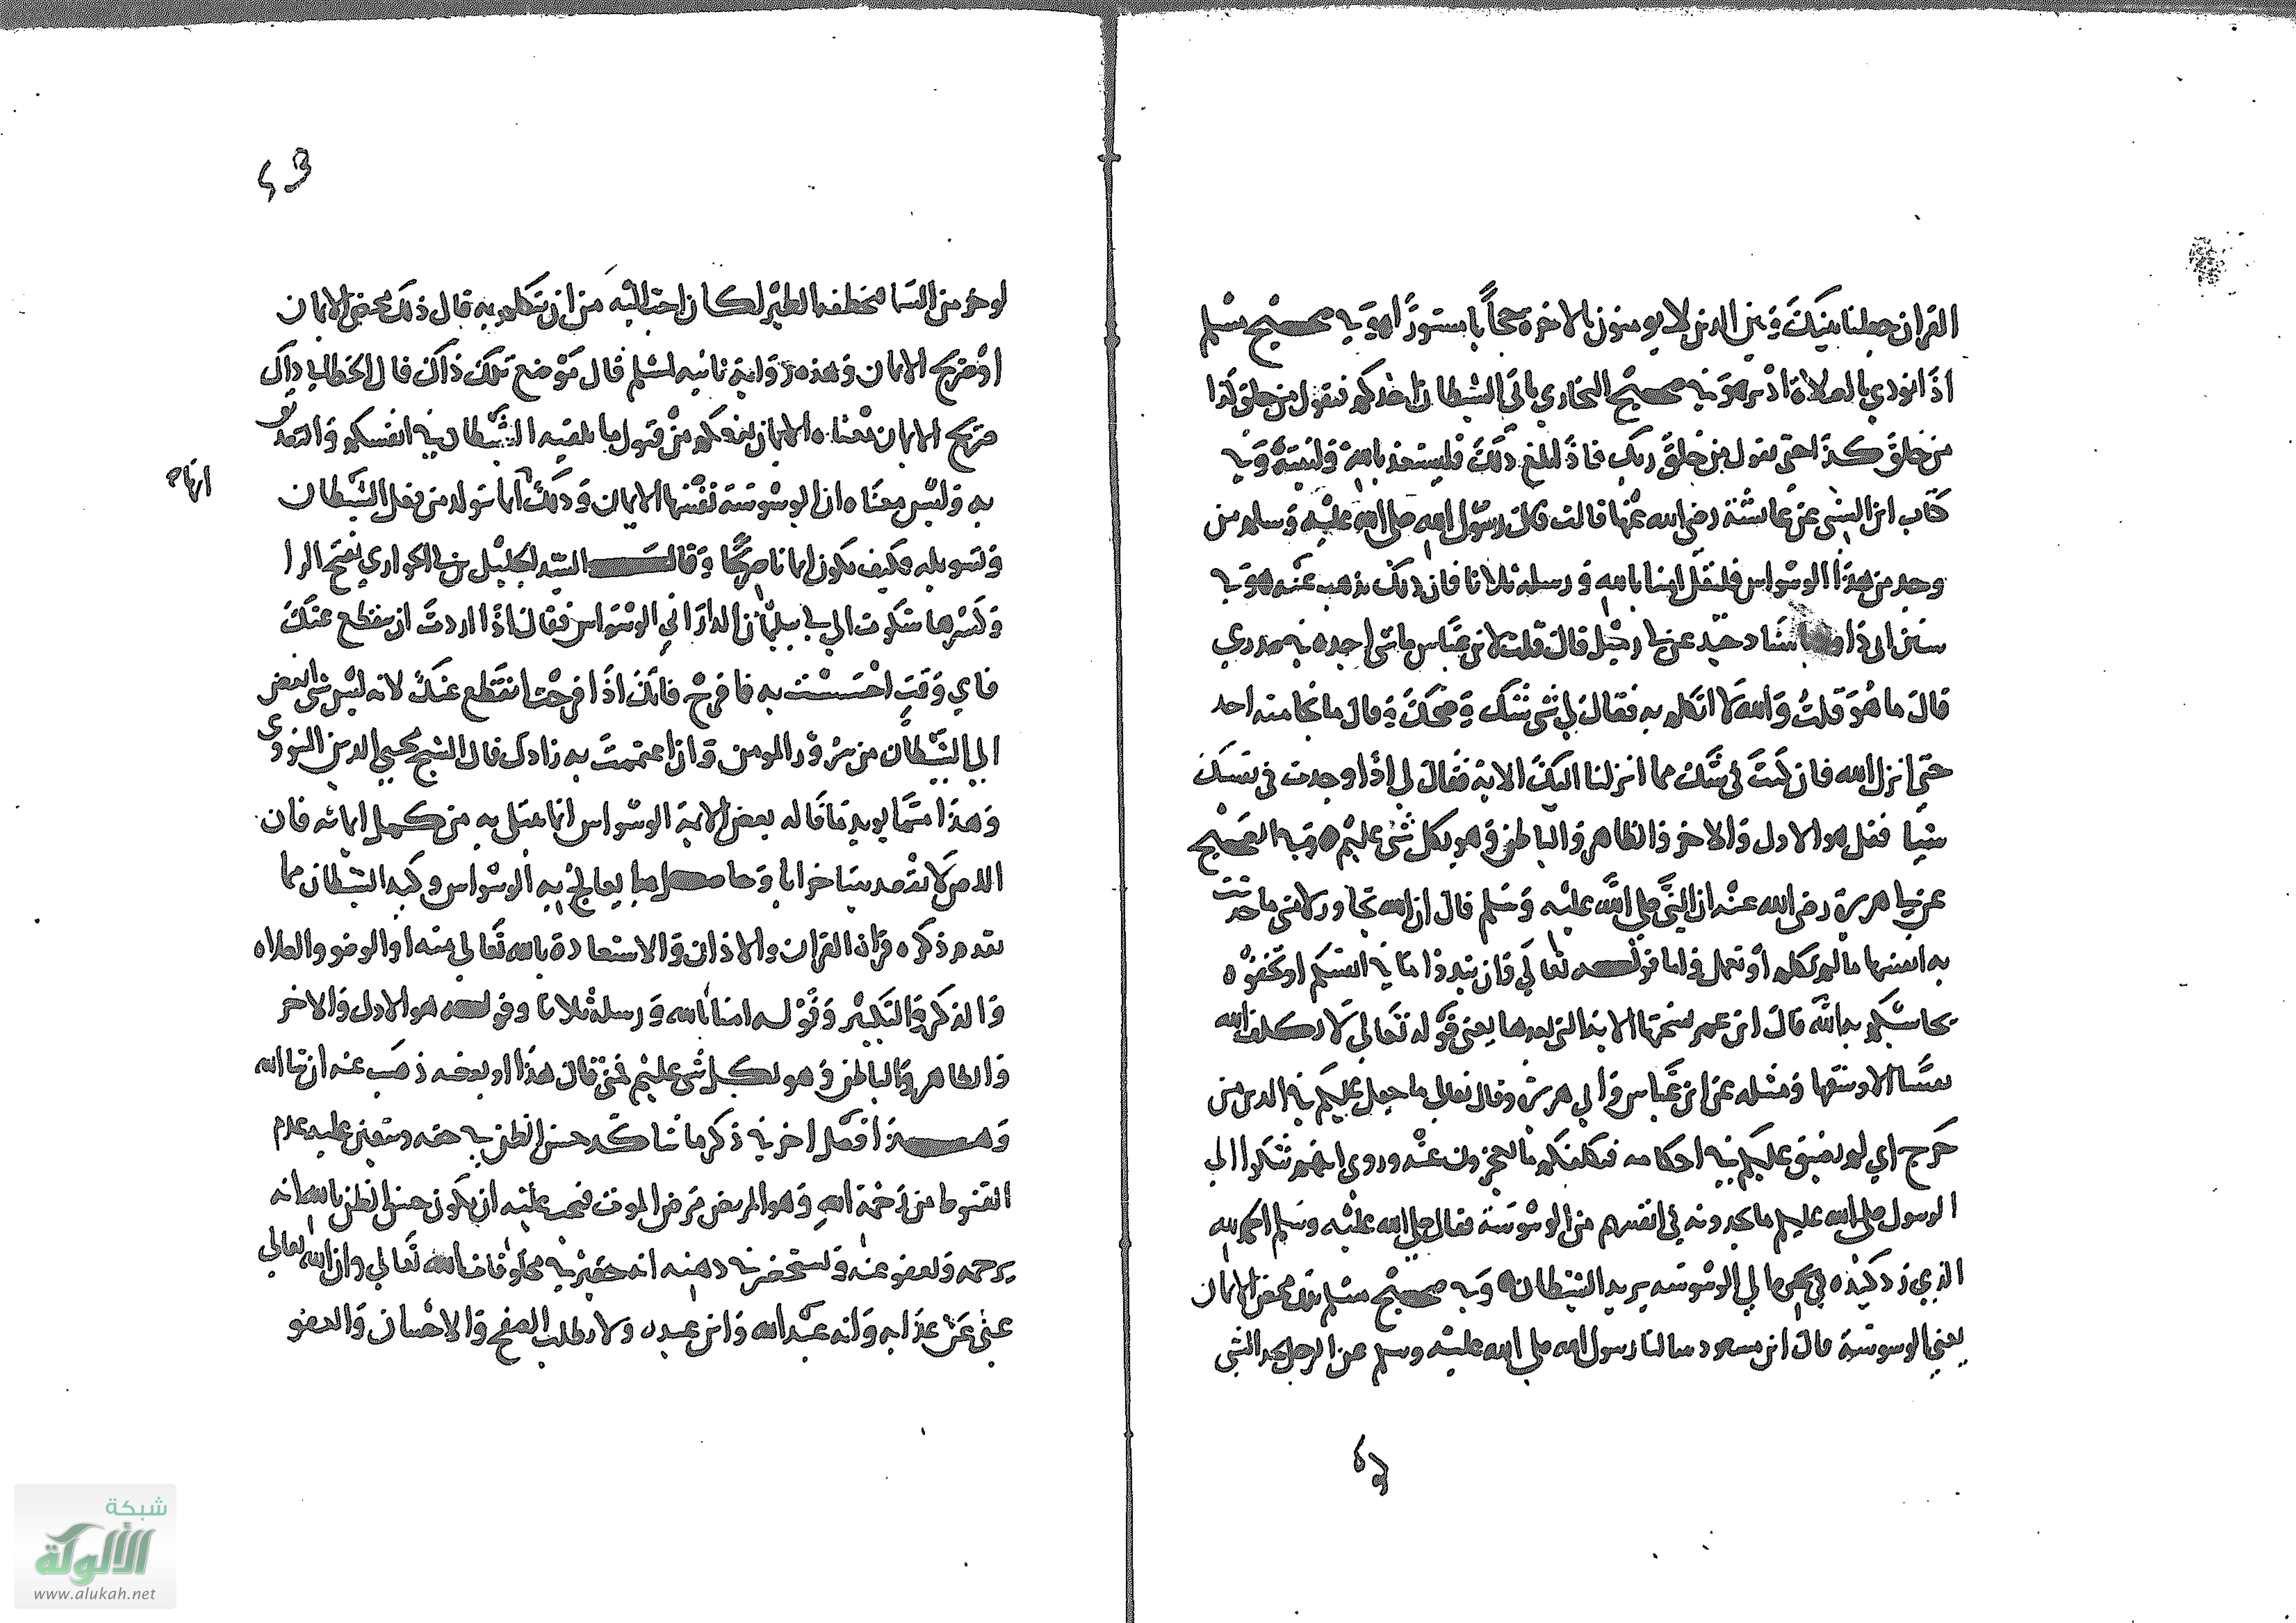 القران جعلنا بينك وبين الذين لا يومنون بالاخرة حجاباً مستوراً وفي صحيح مسلم
اذا نودي بالصلاة ادبر وفي صحيح البخاري ياتي الشيطان احدكم فيقول من خلق كذا
من خلق كذا حتى يقول من خلق ربك فاذا بلغ ذلك فليستعذ بالله ولينته وفي
كتاب ابن السني عن عائشة رضي الله عنها قالت قال رسول الله صلى الله عليه وسلم من
وجد من هذا الوسواس فليقل امنا بالله ورسله ثلاثا فان ذلك يذهب عنه وفي
سنن ابي داود باسناد جيد عن ابي زميل قال قلت لابن عباس ما شي اجده في صدري
قال ما هو قلت والله لا اتكلم به فقال لي شي شك وضحك وقال ما نجا منه احد
حتى انزل الله فان كنت في شك مما انزلنا اليك الاية فقال لي اذا وجدت في نفسك
شيا فقل هو الاول والاخر والظاهر والباطن وهو بكل شي عليم وفي الصحيح
عن ابي هريرة رضي الله عنه ان النبي صلى الله عليه وسلم قال ان الله تجاوز لامتي ما حدثت
به انفسها ما لم تتكلم او تعمل فاما قوله تعالي وان تبدوا ما في انفسكم او تخفوه
يحاسبكم به الله قال ابن عمر نسختها الاية التي بعدها يعني قوله تعالي لا يكلف الله
نفسا الا وسعها ومثله عن ابن عباس وابي هريرة وقال تعالى ما جعل عليكم في الدين من
حرج اي لم يضيق عليكم في احكامه فيكلفكم ما تعجزون عنه وروي انهم شكوا الى
الرسول صلى الله عليه ما يجدونه في انفسهم من الوسوسة فقال صلى الله عليه وسلم الحمد لله
الذي رد كيده الي الوسوسه يريد الشيطان وفي صحيح مسلم تلك محض الايمان
يعني الوسوسة قال ابن مسعود سالنا رسول الله صلى الله عليه وسلم عن الرجل يجد الشي
لو خر من السما فتخطفه الطير لكان احب اليه من ان يتكلم به قال ذلك محض الايمان
او صريح الايمان وهذه رواية ثانيه لمسلم قال موضع تلك ذاك قال الخطابي ذاك
صريح الايمان معناه الايمان يمنعكم من قبول ما يلقيه الشيطان في انفسكم والتصديق
به وليس معناه ان الوسوسة نفسها الايمان وذلك انها تتولد من فعل الشيطان
انها
وتسويله فكيف تكون ايمانا صريحا وقال السيد الجليل ابن ابي الحواري بفتح الرا
وكسرها شكوت الى ابي سليمان الداراني الوسواس فقال اذا اردت ان ينقطع عنك
فاي وقت احسست به فافرح فانك اذا فرحت انقطع عنك لانه ليس شي ابغض
الى الشيطان من سرور المومن وان اغتممت به زادك قال الشيخ محيي الدين النووي
وهذا مما يويد ما قاله بعض الايمة الوسواس انما يبتلي به من كمل ايمانه فان
اللص لا يقصد بيتا خرابا وحاصل ما يعالج به الوسواس وكيد الشيطان مما
تقدم ذكره قراة القران والاذان والاستعاذة بالله تعالي منه او الوضو والصلاه
والذكر والتكبير وقوله امنا بالله ورسله ثلاثا وقوله هو الاول والاخر
والظاهر والباطن وهو بكل شي عليم فمن قال هذا او بعضه ذهب عنه ان شا الله
وهــذا فصل اخر في ذكر ما يتاكد حسن الظن في حقه ويتعين عليه عدم
القنوط من رحمة الله وهو المريض مرض الموت فيجب عليه ان يكون حسن الظن بالله انه
يرحمه ويعفو عنه ويستحضر في ذهنه انه حقير في مخلوقات الله تعالي وان الله تعالي
غني عن عذابه وانه عبد الله وابن عبده ولا يطلب الصفح والاحسان والعفو
شبكة
الألوكة
www.alukah.net